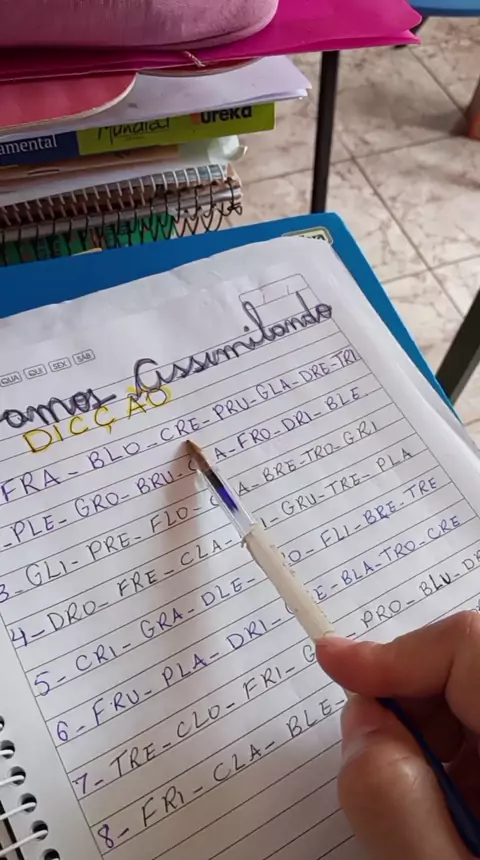 Mundial eureka
amental
QUA QUI SEX SÁB
amos Assimilando
DICÇÃO
FRA - BLO - CRE - PRU - GLA - DRE - TRI
- PLE - GRO - BRU - A - FRO - DRI - BLE
3 - GLI - PRE - FLO - A - BRE - TRO - GRI
4 - DRO - FRE - CLA - I - GRU - TRE - PLA
5 - CRI - GRA - DLE - O - FLI - BRE - TRE
6 - FRU - PLA - DRI - E - BLA - TRO - CRE
7 - TRE - CLO - FRI - G - PRO - BLU - DR
8 - FRI - CLA - BLE -